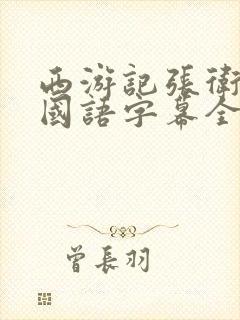 西游記張衛
國語字幕全
曾長羽